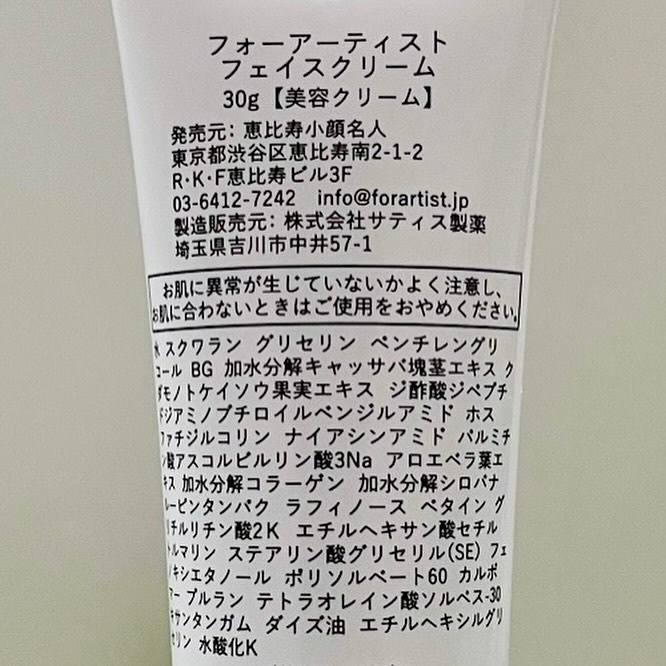 フォーアーティスト
フェイスクリーム
30g【美容クリーム】
発売元: 恵比寿小顔名人
東京都渋谷区恵比寿南2-1-2
R・K・F恵比寿ビル3F
03-6412-7242 info@forartist.jp
製造販売元: 株式会社サティス製薬
埼玉県吉川市中井57-1
お肌に異常が生じていないかよく注意し、
お肌に合わないときはご使用をおやめください。
水 スクワラン グリセリン ペンチレングリ
コール BG 加水分解キャッサバ塊茎エキス ク
ダモノトケイソウ果実エキス ジ酢酸ジペプチ
ドジアミノブチロイルベンジルアミド ホス
ファチジルコリン ナイアシンアミド パルミチ
ン酸アスコルビルリン酸3Na アロエベラ葉エ
キス 加水分解コラーゲン 加水分解シロバナ
ルーピンタンパク ラフィノース ベタイン グ
リチルリチン酸2K エチルヘキサン酸セチル
トルマリン ステアリン酸グリセリル(SE) フェ
ノキシエタノール ポリソルベート60 カルボ
マー プルラン テトラオレイン酸ソルベス-30
キサンタンガム ダイズ油 エチルヘキシルグリ
セリン 水酸化K